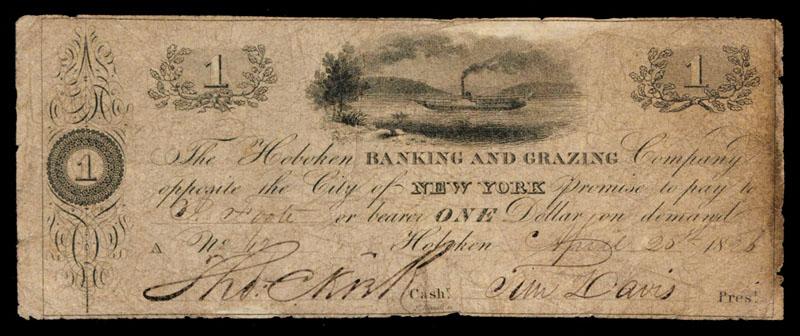 1 1
The Hoboken BANKING AND GRAZING Company
1
opposite the City of NEW YORK Promise to pay to
Foote or bearer ONE Dollar on demand
A No 62 Hoboken April 25th 18
Cashr. Tim Davis Prest.